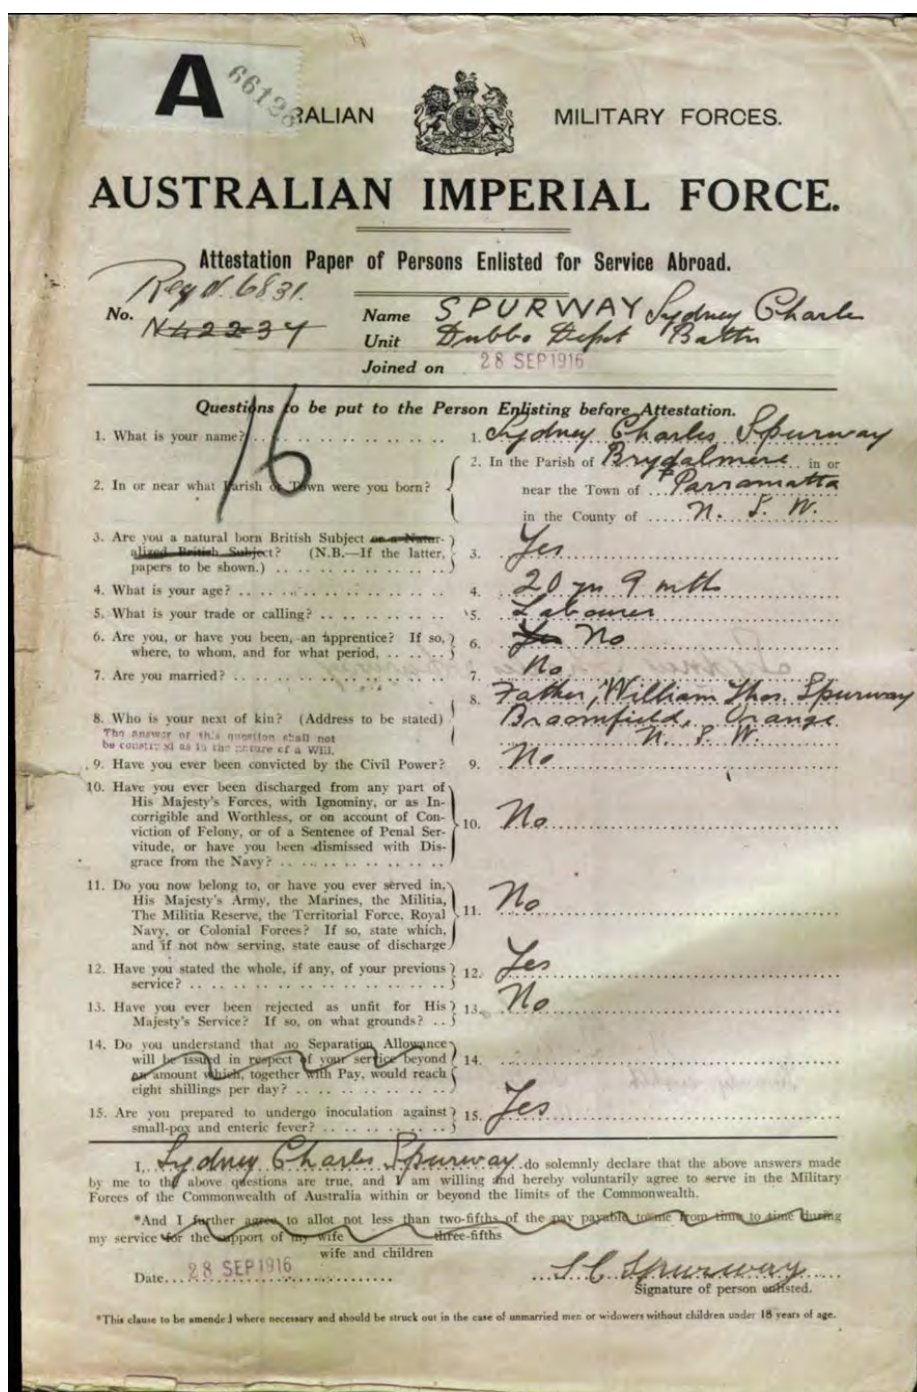 A 66198
RALIAN MILITARY FORCES.
AUSTRALIAN IMPERIAL FORCE.
Attestation Paper of Persons Enlisted for Service Abroad.
Reg d. 6831.
No. N42234
Name SPURWAY Sydney Charles
Unit Dubbo Depot Battn
Joined on 28 SEP 1916
16
Questions to be put to the Person Enlisting before Attestation.
1. What is your name? 1. Sydney Charles Spurway
2. In or near what Parish or Town were you born? 2. In the Parish of Brydalmere in or
near the Town of Parramatta
in the County of N. S. W.
3. Are you a natural born British Subject or a Natur-
alized British Subject? (N.B.—If the latter, 3. Yes
papers to be shown.)
4. What is your age? 4. 20 yrs 9 mths
5. What is your trade or calling? 5. Labourer
6. Are you, or have you been, an apprentice? If so, 6. Yes No
where, to whom, and for what period.
7. Are you married? 7. No
8. Who is your next of kin? (Address to be stated) 8. Father, William Thos. Spurway
Broomfield, Orange
N. S. W.
The answer of this question shall not
be construed as in the nature of a Will.
9. Have you ever been convicted by the Civil Power? 9. No
10. Have you ever been discharged from any part of
His Majesty's Forces, with Ignominy, or as In-
corrigible and Worthless, or on account of Con- 10. No
viction of Felony, or of a Sentence of Penal Ser-
vitude, or have you been dismissed with Dis-
grace from the Navy?
11. Do you now belong to, or have you ever served in,
His Majesty's Army, the Marines, the Militia,
The Militia Reserve, the Territorial Force, Royal 11. No
Navy, or Colonial Forces? If so, state which,
and if not now serving, state cause of discharge
12. Have you stated the whole, if any, of your previous 12. Yes
service?
13. Have you ever been rejected as unfit for His 13. No
Majesty's Service? If so, on what grounds?
14. Do you understand that no Separation Allowance
will be issued in respect of your service beyond 14.
an amount which, together with Pay, would reach
eight shillings per day?
15. Are you prepared to undergo inoculation against 15. Yes
small-pox and enteric fever?
I, Sydney Charles Spurway do solemnly declare that the above answers made
by me to the above questions are true, and I am willing and hereby voluntarily agree to serve in the Military
Forces of the Commonwealth of Australia within or beyond the limits of the Commonwealth.
*And I further agree to allot not less than two-fifths of the pay payable to me from time to time during
my service for the support of my wife three-fifths
wife and children
Date 28 SEP 1916
S C Spurway
Signature of person enlisted.
*This clause to be amended where necessary and should be struck out in the case of unmarried men or widowers without children under 18 years of age.